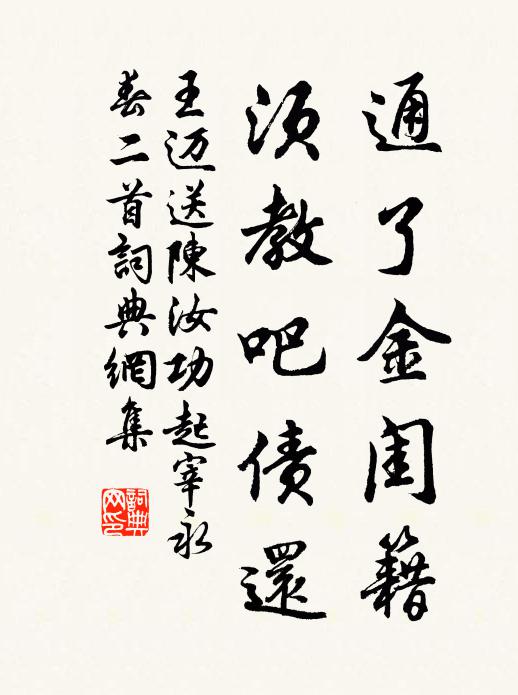 通了金閨籍
須教吧债還
王迈送陳汝功起宰永
春二首詞典網集
詞典网印